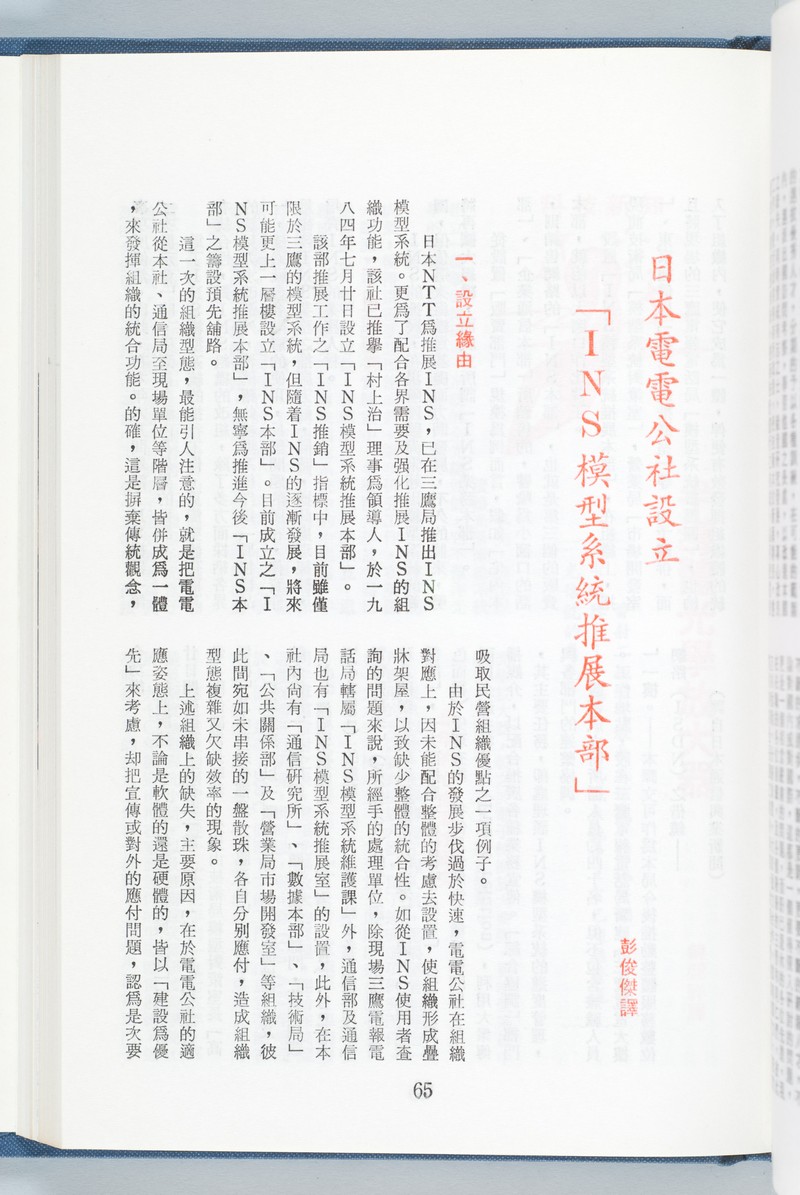 日本電電公社設立
「INS模型系統推展本部」
彭俊傑譯
一、設立緣由
日本NTT爲推展INS，已在三鷹局推出INS
模型系統。更爲了配合各界需要及强化推展INS的組
織功能，該社已推舉「村上治」理事爲領導人，於一九
八四年七月廿日設立「INS模型系統推展本部」。
該部推展工作之「INS推銷」指標中，目前雖僅
限於三鷹的模型系統，但隨着INS的逐漸發展，將來
可能更上一層樓設立「INS本部」。目前成立之「I
NS模型系統推展本部」，無寧爲推進今後「INS本
部」之籌設預先舖路。
這一次的組織型態，最能引人注意的，就是把電電
公社從本社、通信局至現場單位等階層，皆併成爲一體
，來發揮組織的統合功能。的確，這是摒棄傳統觀念，
吸取民營組織優點之一項例子。
由於INS的發展步伐過於快速，電電公社在組織
對應上，因未能配合整體的考慮去設置，使組織形成疊
牀架屋，以致缺少整體的統合性。如從INS使用者查
詢的問題來說，所經手的處理單位，除現場三鷹電報電
話局轄屬「INS模型系統維護課」外，通信部及通信
局也有「INS模型系統推展室」的設置，此外，在本
社內尙有「通信研究所」、「數據本部」、「技術局」
、「公共關係部」及「營業局市場開發室」等組織，彼
此間宛如未串接的一盤散珠，各自分別應付，造成組織
型態複雜又欠缺效率的現象。
上述組織上的缺失，主要原因，在於電電公社的適
應姿態上，不論是軟體的還是硬體的，皆以「建設爲優
先」來考慮，却把宣傳或對外的應付問題，認爲是次要
65